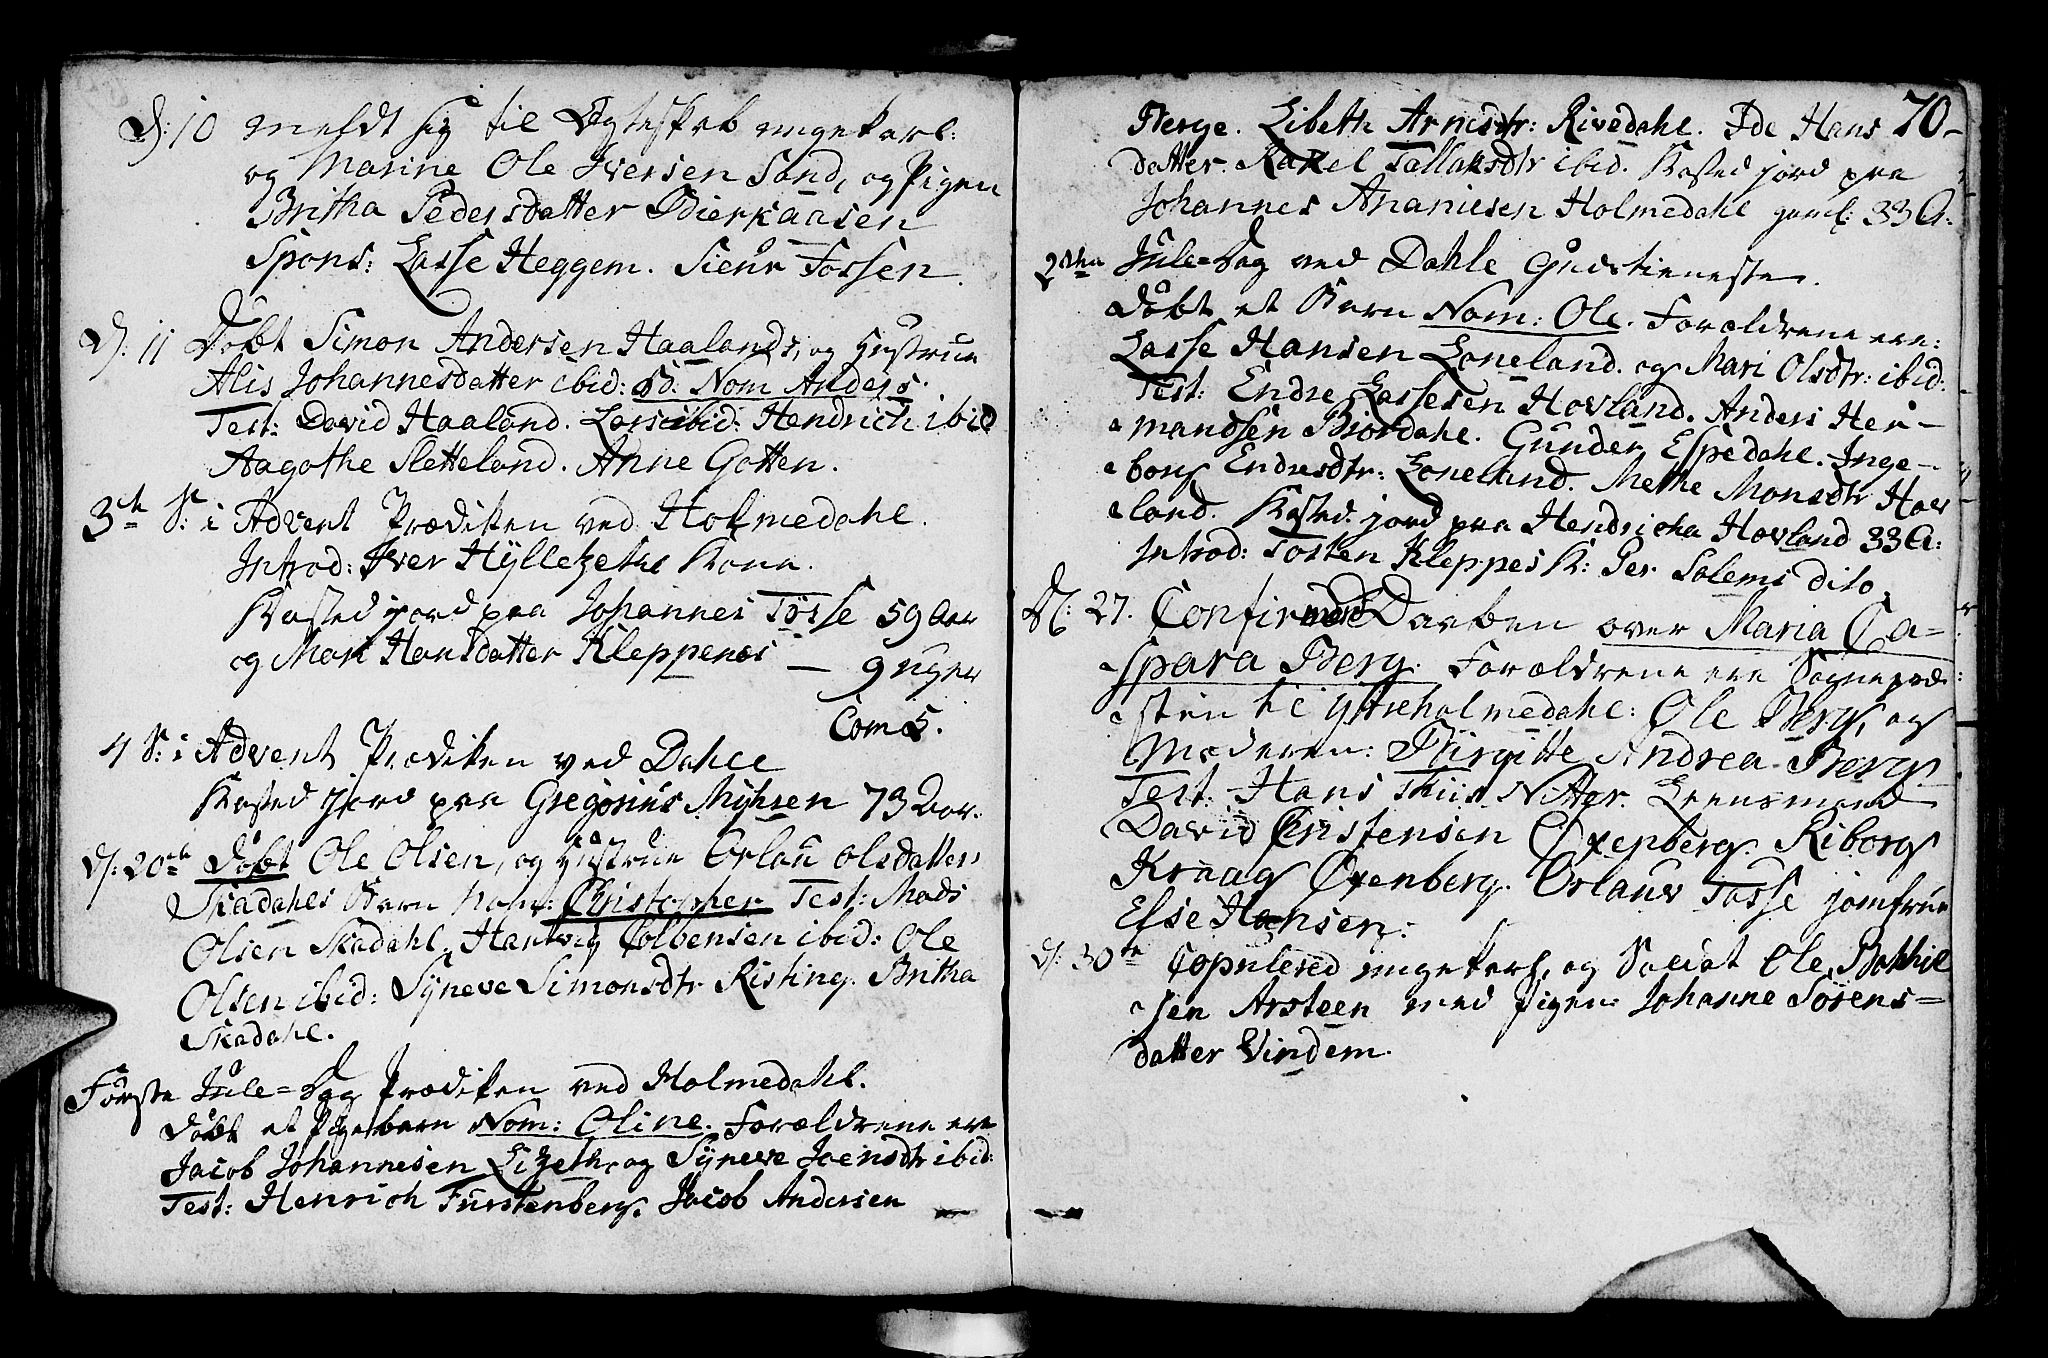 D: 10 meldt sig til Ægteskab ungekarl:
og Marine Ole Iversen Sand, og Pigen
Britha Pedersdatter Birkaasen
Spons: Lasse Heggem. Siéur Fossen.
D: 11 Døbt Simon Andersen Haalands, og Hustrue
Alis Johannesdatter ibid: Nom Anders.
Test: David Haaland. Lars ibid: Hendrich ibid
Aagothe Sletteland. Anne Gotten.
3de S: i Advent Prædiken ved Holmedahl.
Introd: Iver Hÿllesethes Kone.
Kasted jord paa Johannes Tøsse 59 Aar
og Mari Hansdatter Kleppenes — 9 uger
Com 5.
4 S: i Advent Prædiken ved Dahle
Kasted jord paa Gregorius Mÿhren 73 Aar.
D: 20de Døbt Ole Olsen, og Hustrue Orlau Olsdatter
Skadahls Barn Nom: Christopher Test: Mads
Olsen Skadahl, Hartvig Colbensen ibid: Ole
Olsen ibid: Sÿneve Simonsdtr Risting. Britha
Skadahl.
Første Jule=Dag Prædiken ved Holmedahl.
Døbt et Pigebarn Nom: Oline. Forældrene ere
Jacob Johannesen Lizeth, og Sÿneve Joensdtr ibid:
Test: Henrich Fürstenberg. Jacob Andersen
70
Berge. Lisbeth Arnesdtr: Rivedahl. Ide Hans
datter. Rakel Tollaksdtr ibid. Kasted jord paa
Johannes Ananiesen Holmedahl gaml: 33 A:
2den Jule=Dag ved Dahle Gudstieneste.
Døbt et Barn Nom: Ole. Forældrene ere:
Lasse Hansen Loneland. og Mari Olsdtr: ibid:
Test: Endre Lassesen Hovland. Anders Her-
mandsen Biordahl. Gunder Espedahl. Inge-
borg Endresdtr: Loneland. Methe Monsdtr Hov
land. Kasted jord paa Hendricha Hovland 33 A:
Introd: Tosten Kleppes K: Per Solems dito.
D: 27. Confirmered Daaben over Maria Ca=
spara Berg. Forældrene ere Sognepræ:
sten til Ÿtreholmedahl: Ole Berg, og
Moderen: Birgitte Andrea Berg.
Test: Hans Thiis Nitter. Leensmand
David Christensen Oxenberg. Riborg
Kraag Oxenberg. Orlauv Tøsse jomfrue
Else Hansen:
D: 30te Copulered ungekarl, og Soldat Ole
sen Arsteen med Pigen Johanne Sørens=
datter Vindem.